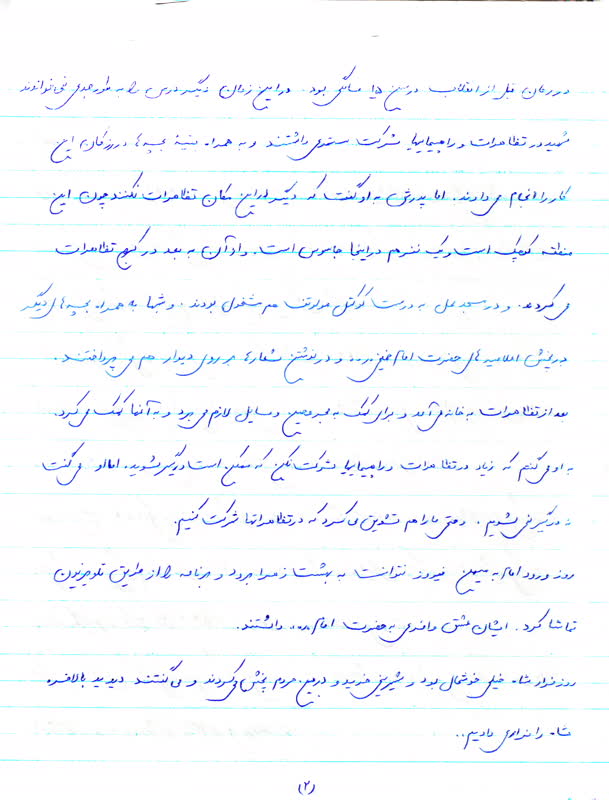 در زمان قبل از انقلاب در سن ۱۵ سالگی بود. در این زمان دیگر درس را به طور جدی نمی‌خواندند
شهید در تظاهرات و راهپیماییها شرکت مستمری داشتند و به همراه بقیه بچه‌ها در رزکان این
کار را انجام می‌دادند. اما پدرش به او گفت که دیگر در این مکان تظاهرات نکنند چون این
منطقه کوچک است و یک نفر هم در اینجا جاسوس است. و از آن به بعد در کرج تظاهرات
می‌کردند. و در مسجد محل به درست کوکتل مولوتف هم مشغول بودند. و شبها به همراه بچه‌های دیگر
در پخش اعلامیه‌های حضرت امام خمینی (ره) و در نوشتن شعارها بر روی دیوار هم می‌پرداختند.
بعد از تظاهرات به خانه می‌آمد و برای کمک به مجروحین وسایل لازم می‌برد و به آنها کمک می‌کرد.
به او می‌گفتم که زیاد در تظاهرات و راهپیماییها شرکت نکن که ممکن است درگیر شوید. اما او می‌گفت
نه درگیر نمی‌شویم. و حتی ما را هم تشویق می‌کرد که در تظاهراتها شرکت کنیم.
روز ورود امام به میهن فیروز نتوانست به بهشت زهرا برود و برنامه را از طریق تلویزیون
تماشا کرد. ایشان عشق وافری به حضرت امام (ره) داشتند.
روز فرار شاه خیلی خوشحال بود و شیرینی خرید و در بین مردم پخش می‌کردند و می‌گفتند دیدید بالاخره
شاه را فراری دادیم..
(۲)